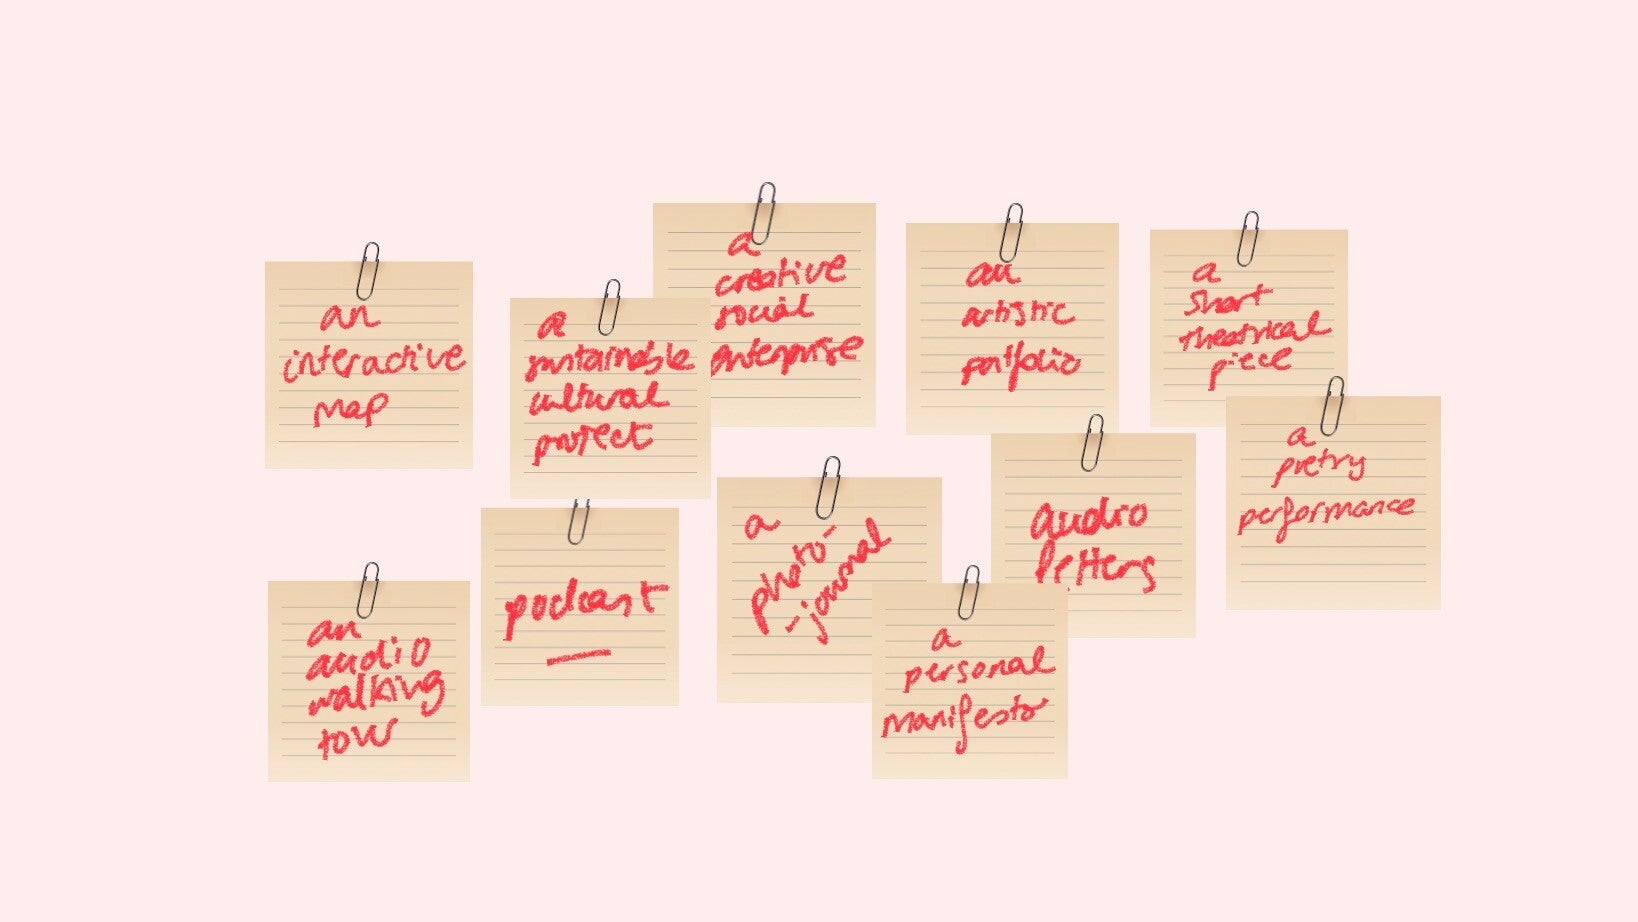 an
interactive
map
a
sustainable
cultural
project
a
creative
social
enterprise
an
artistic
portfolio
a
short
theatrical
piece
an
audio
walking
tour
podcast
a
photo-
-journal
a
personal
manifesto
audio
letters
a
poetry
performance